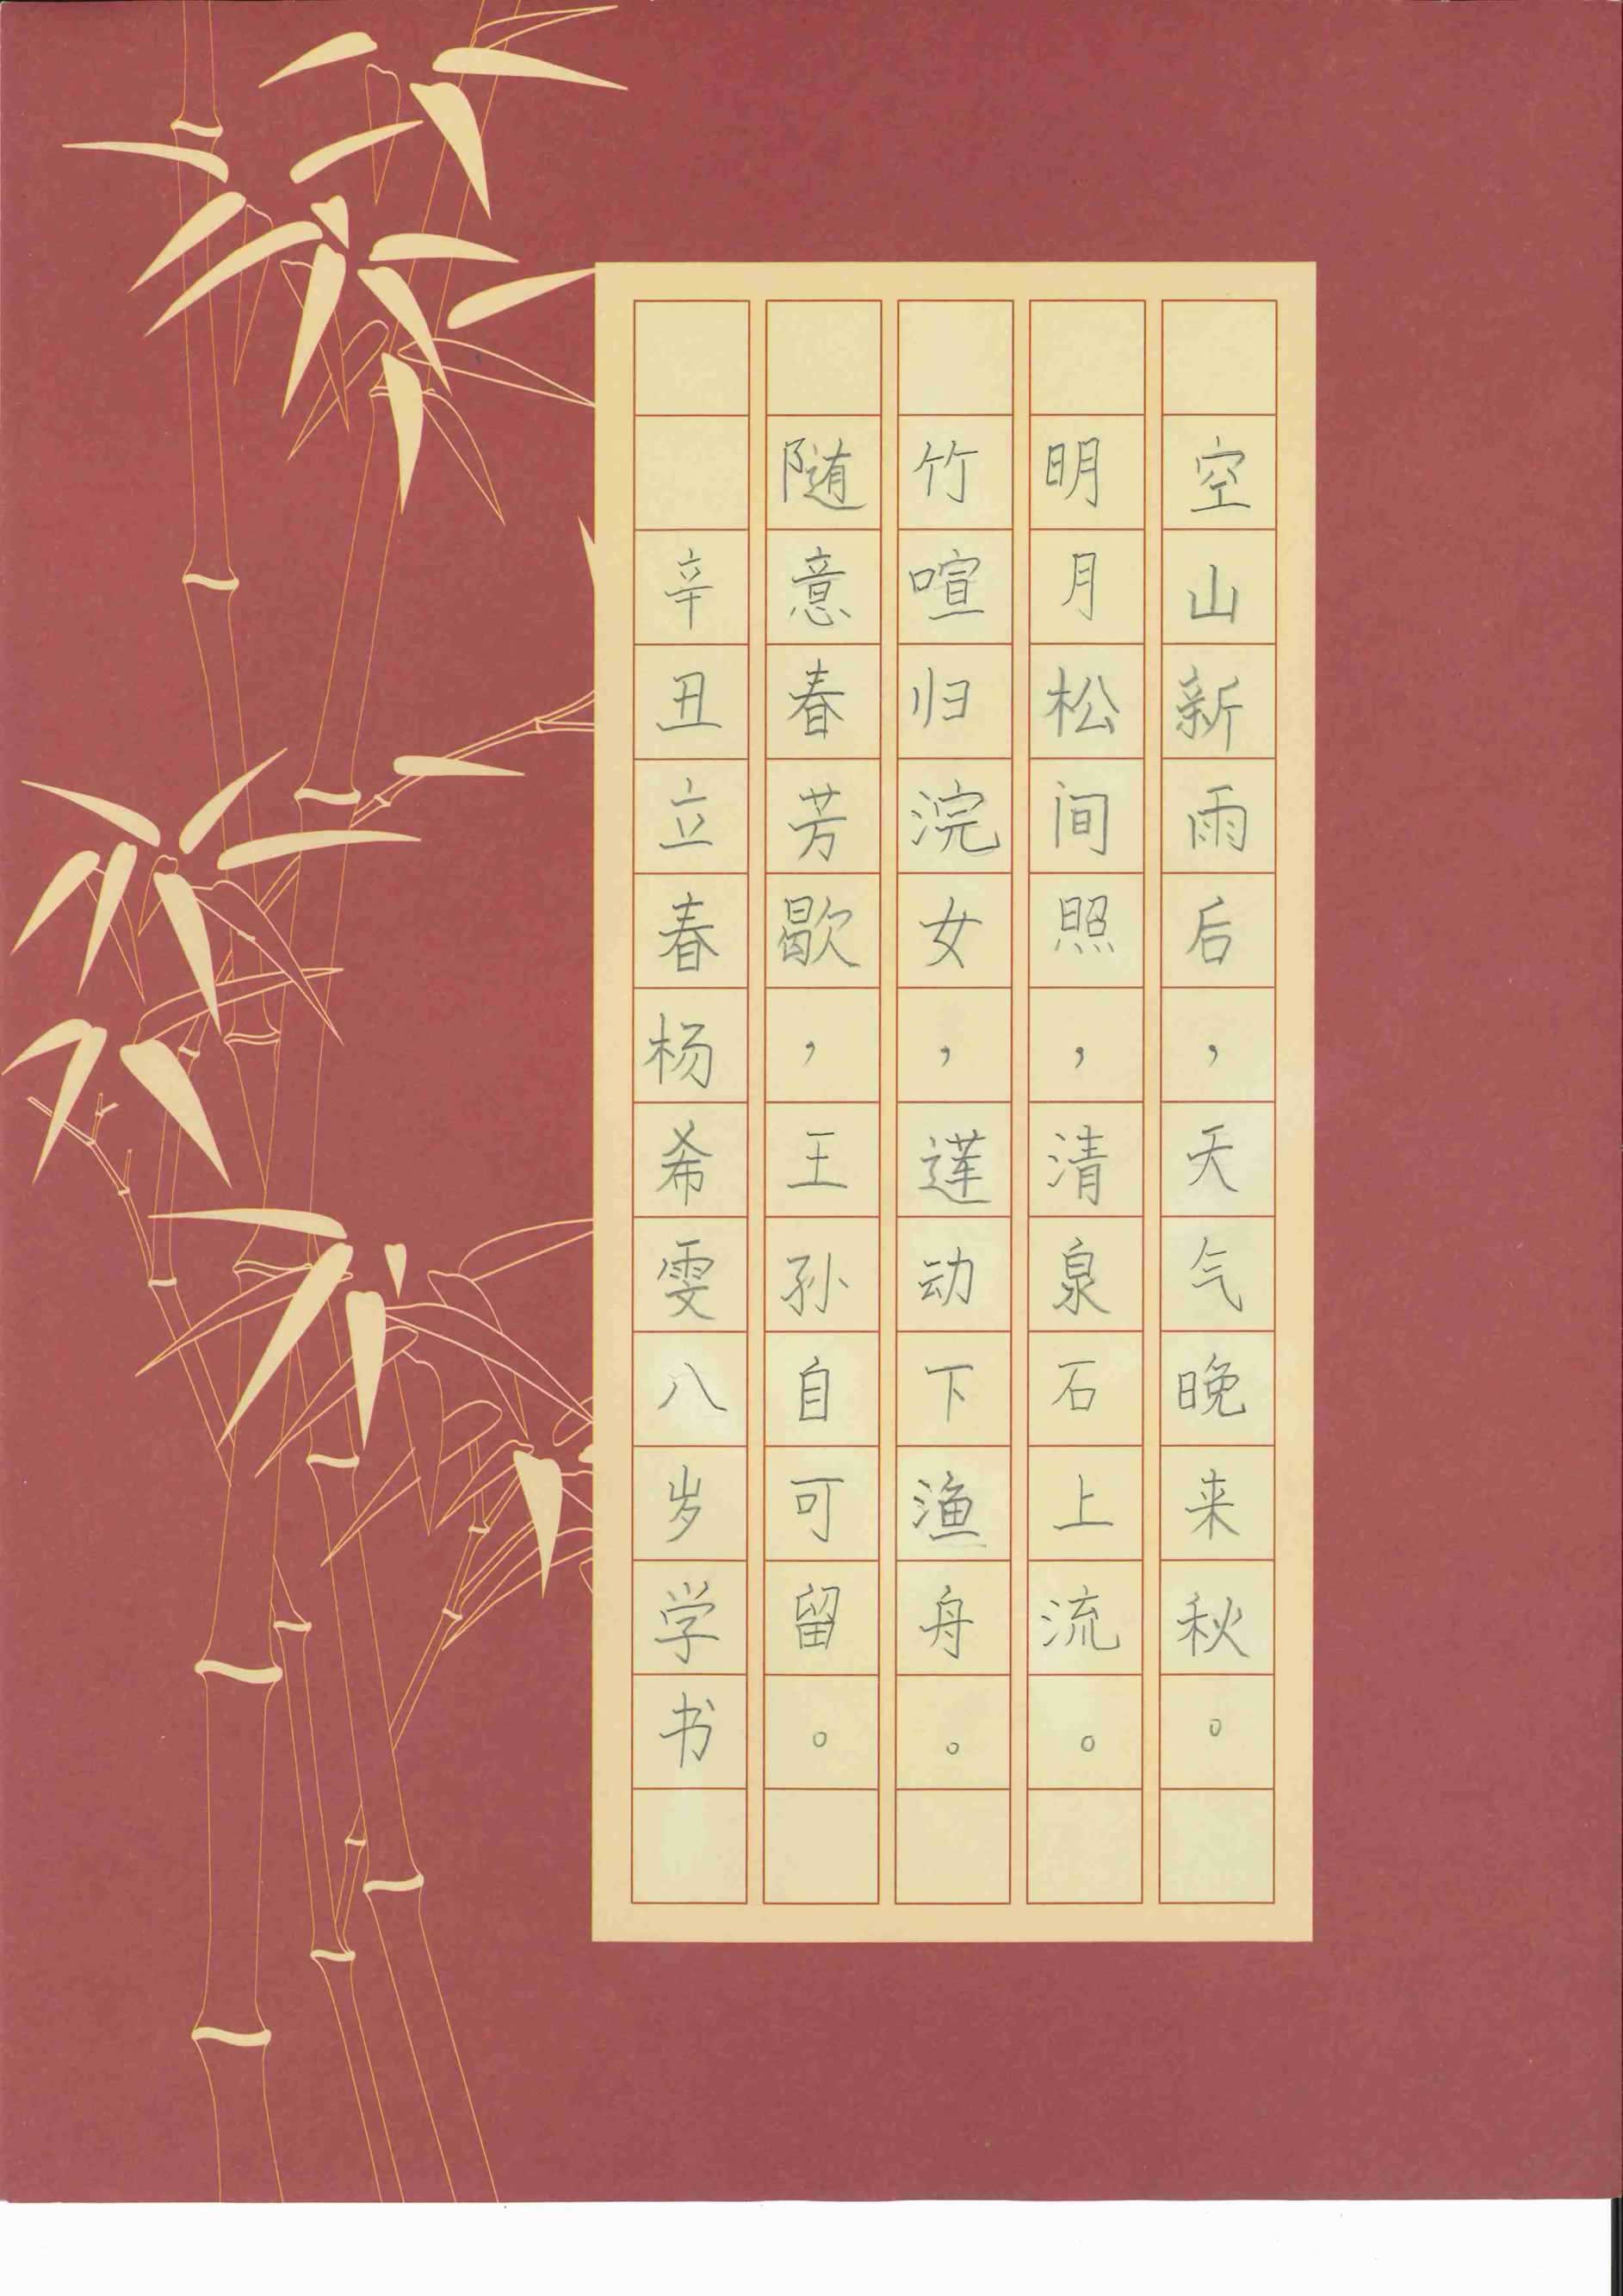 空山新雨后，天气晚来秋。
明月松间照，清泉石上流。
竹喧归浣女，莲动下渔舟。
随意春芳歇，王孙自可留。
辛丑立春杨希雯八岁学书